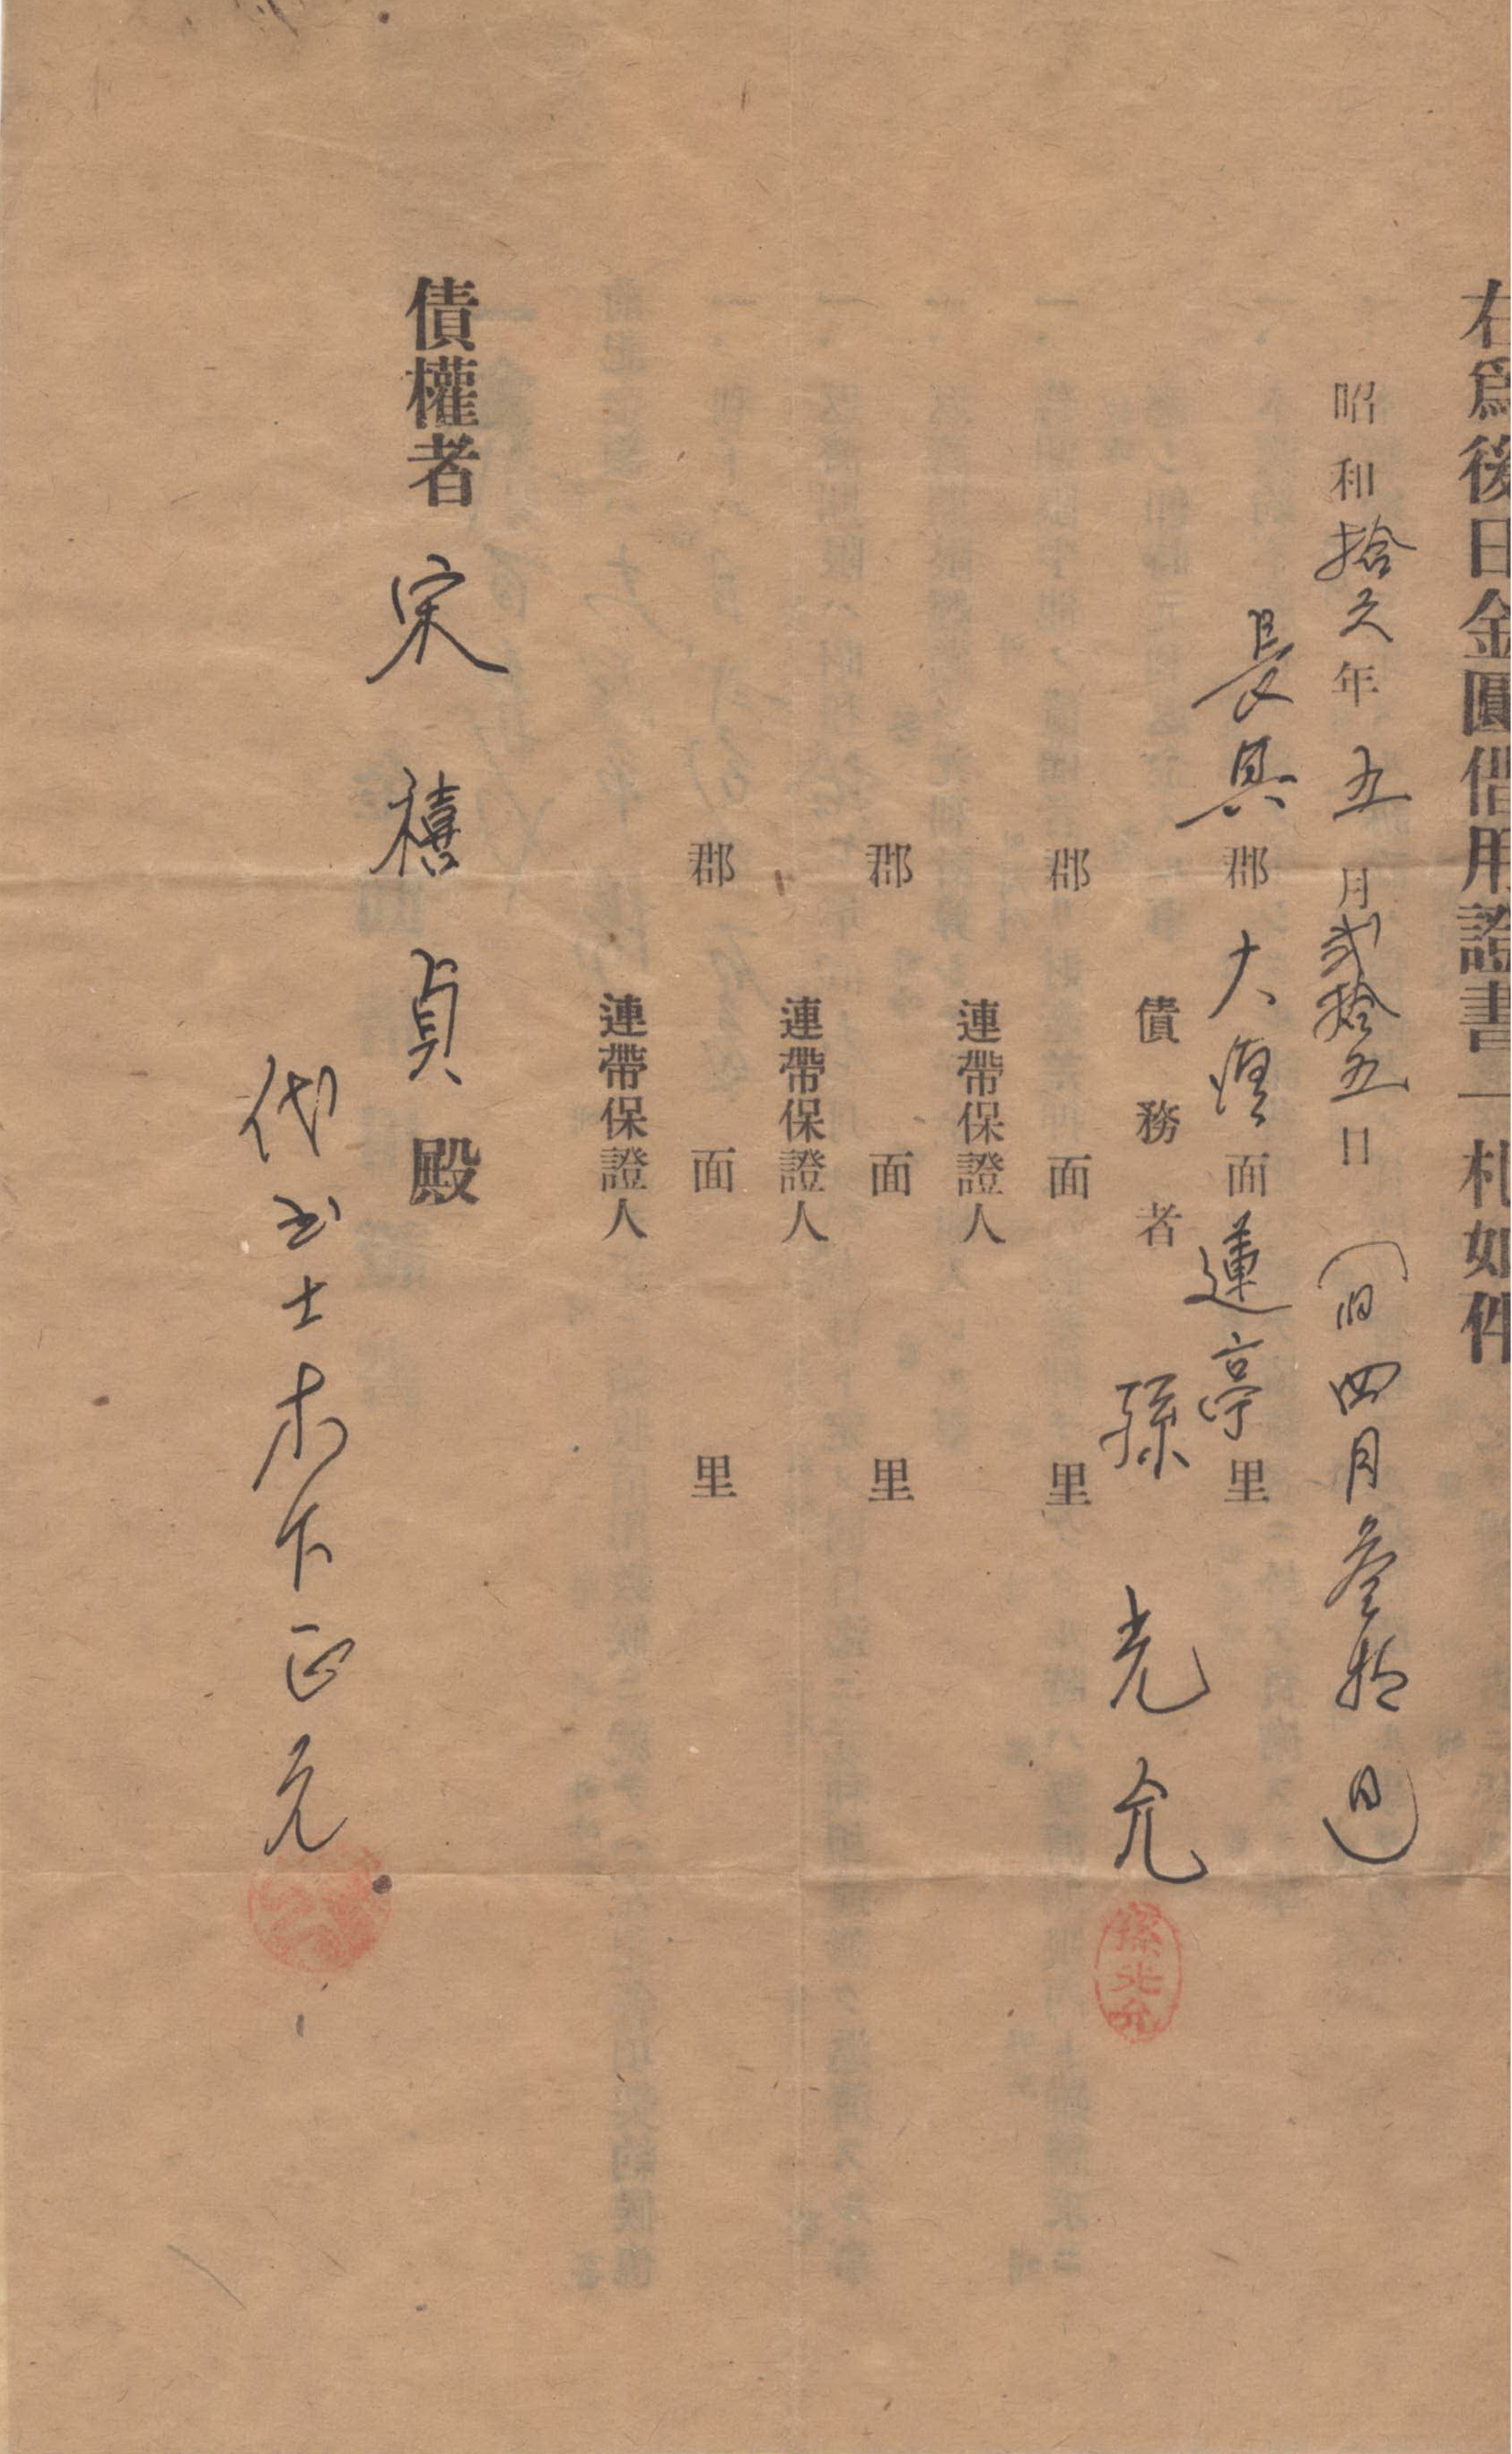 右爲後日金圓借用證書一札如件
昭和拾九年五月貳拾五日(旧四月參拾日)
長興郡大德面蓮亭里
債務者 孫光允
孫光允
郡 面 里
連帶保證人
郡 面 里
連帶保證人
郡 面 里
連帶保證人
債權者 宋禧貞殿
代書士木下正元